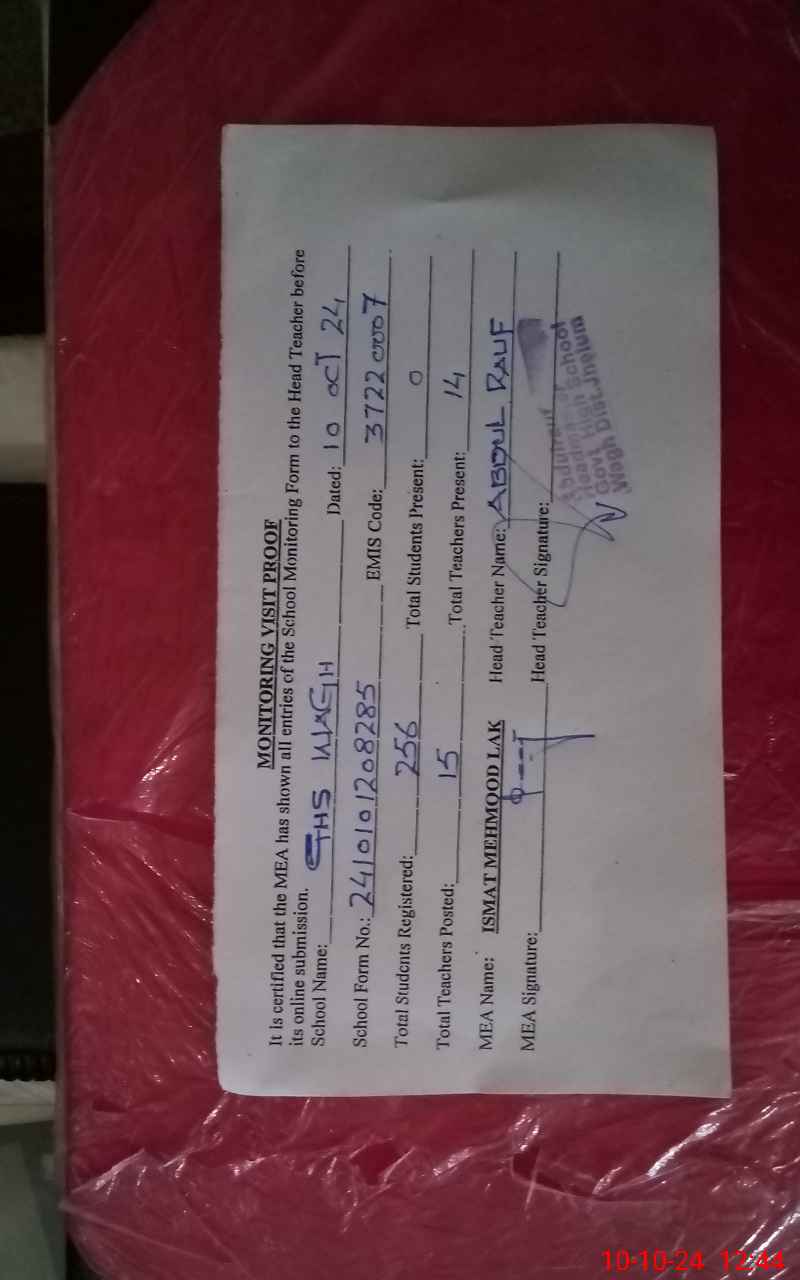 MONITORING VISIT PROOF
It is certified that the MEA has shown all entries of the School Monitoring Form to the Head Teacher before
its online submission.
School Name: GHS WAGH Dated: 10 OCT 24
School Form No.: 2410101208285 EMIS Code: 37220007
Total Students Registered: 256 Total Students Present: 0
Total Teachers Posted: 15 Total Teachers Present: 14
MEA Name: ISMAT MEHMOOD LAK Head Teacher Name: ABDUL RAUF
MEA Signature: Head Teacher Signature:
High School
Wagh Dist. Jhelum
10-10-24 12:44